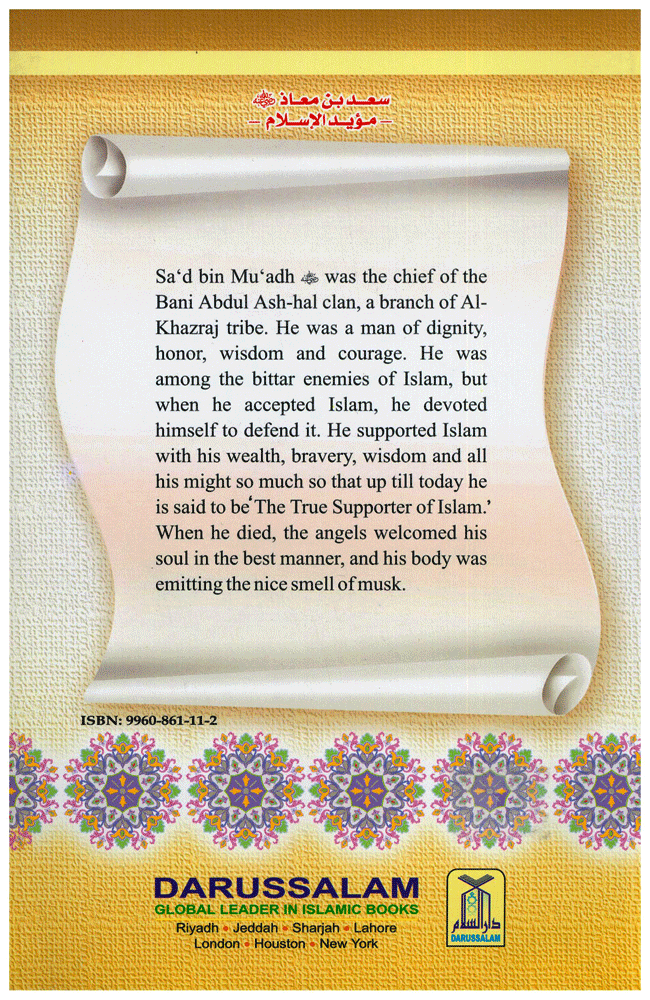 سعد بن معاذ ﷺ
– مؤيد الإسلام –
Sa‘d bin Mu‘adh was the chief of the
Bani Abdul Ash-hal clan, a branch of Al-
Khazraj tribe. He was a man of dignity,
honor, wisdom and courage. He was
among the bittar enemies of Islam, but
when he accepted Islam, he devoted
himself to defend it. He supported Islam
with his wealth, bravery, wisdom and all
his might so much so that up till today he
is said to be ‘The True Supporter of Islam.’
When he died, the angels welcomed his
soul in the best manner, and his body was
emitting the nice smell of musk.
ISBN: 9960-861-11-2
DARUSSALAM
GLOBAL LEADER IN ISLAMIC BOOKS
Riyadh • Jeddah • Sharjah • Lahore
London • Houston • New York
دار السلام
DARUSSALAM